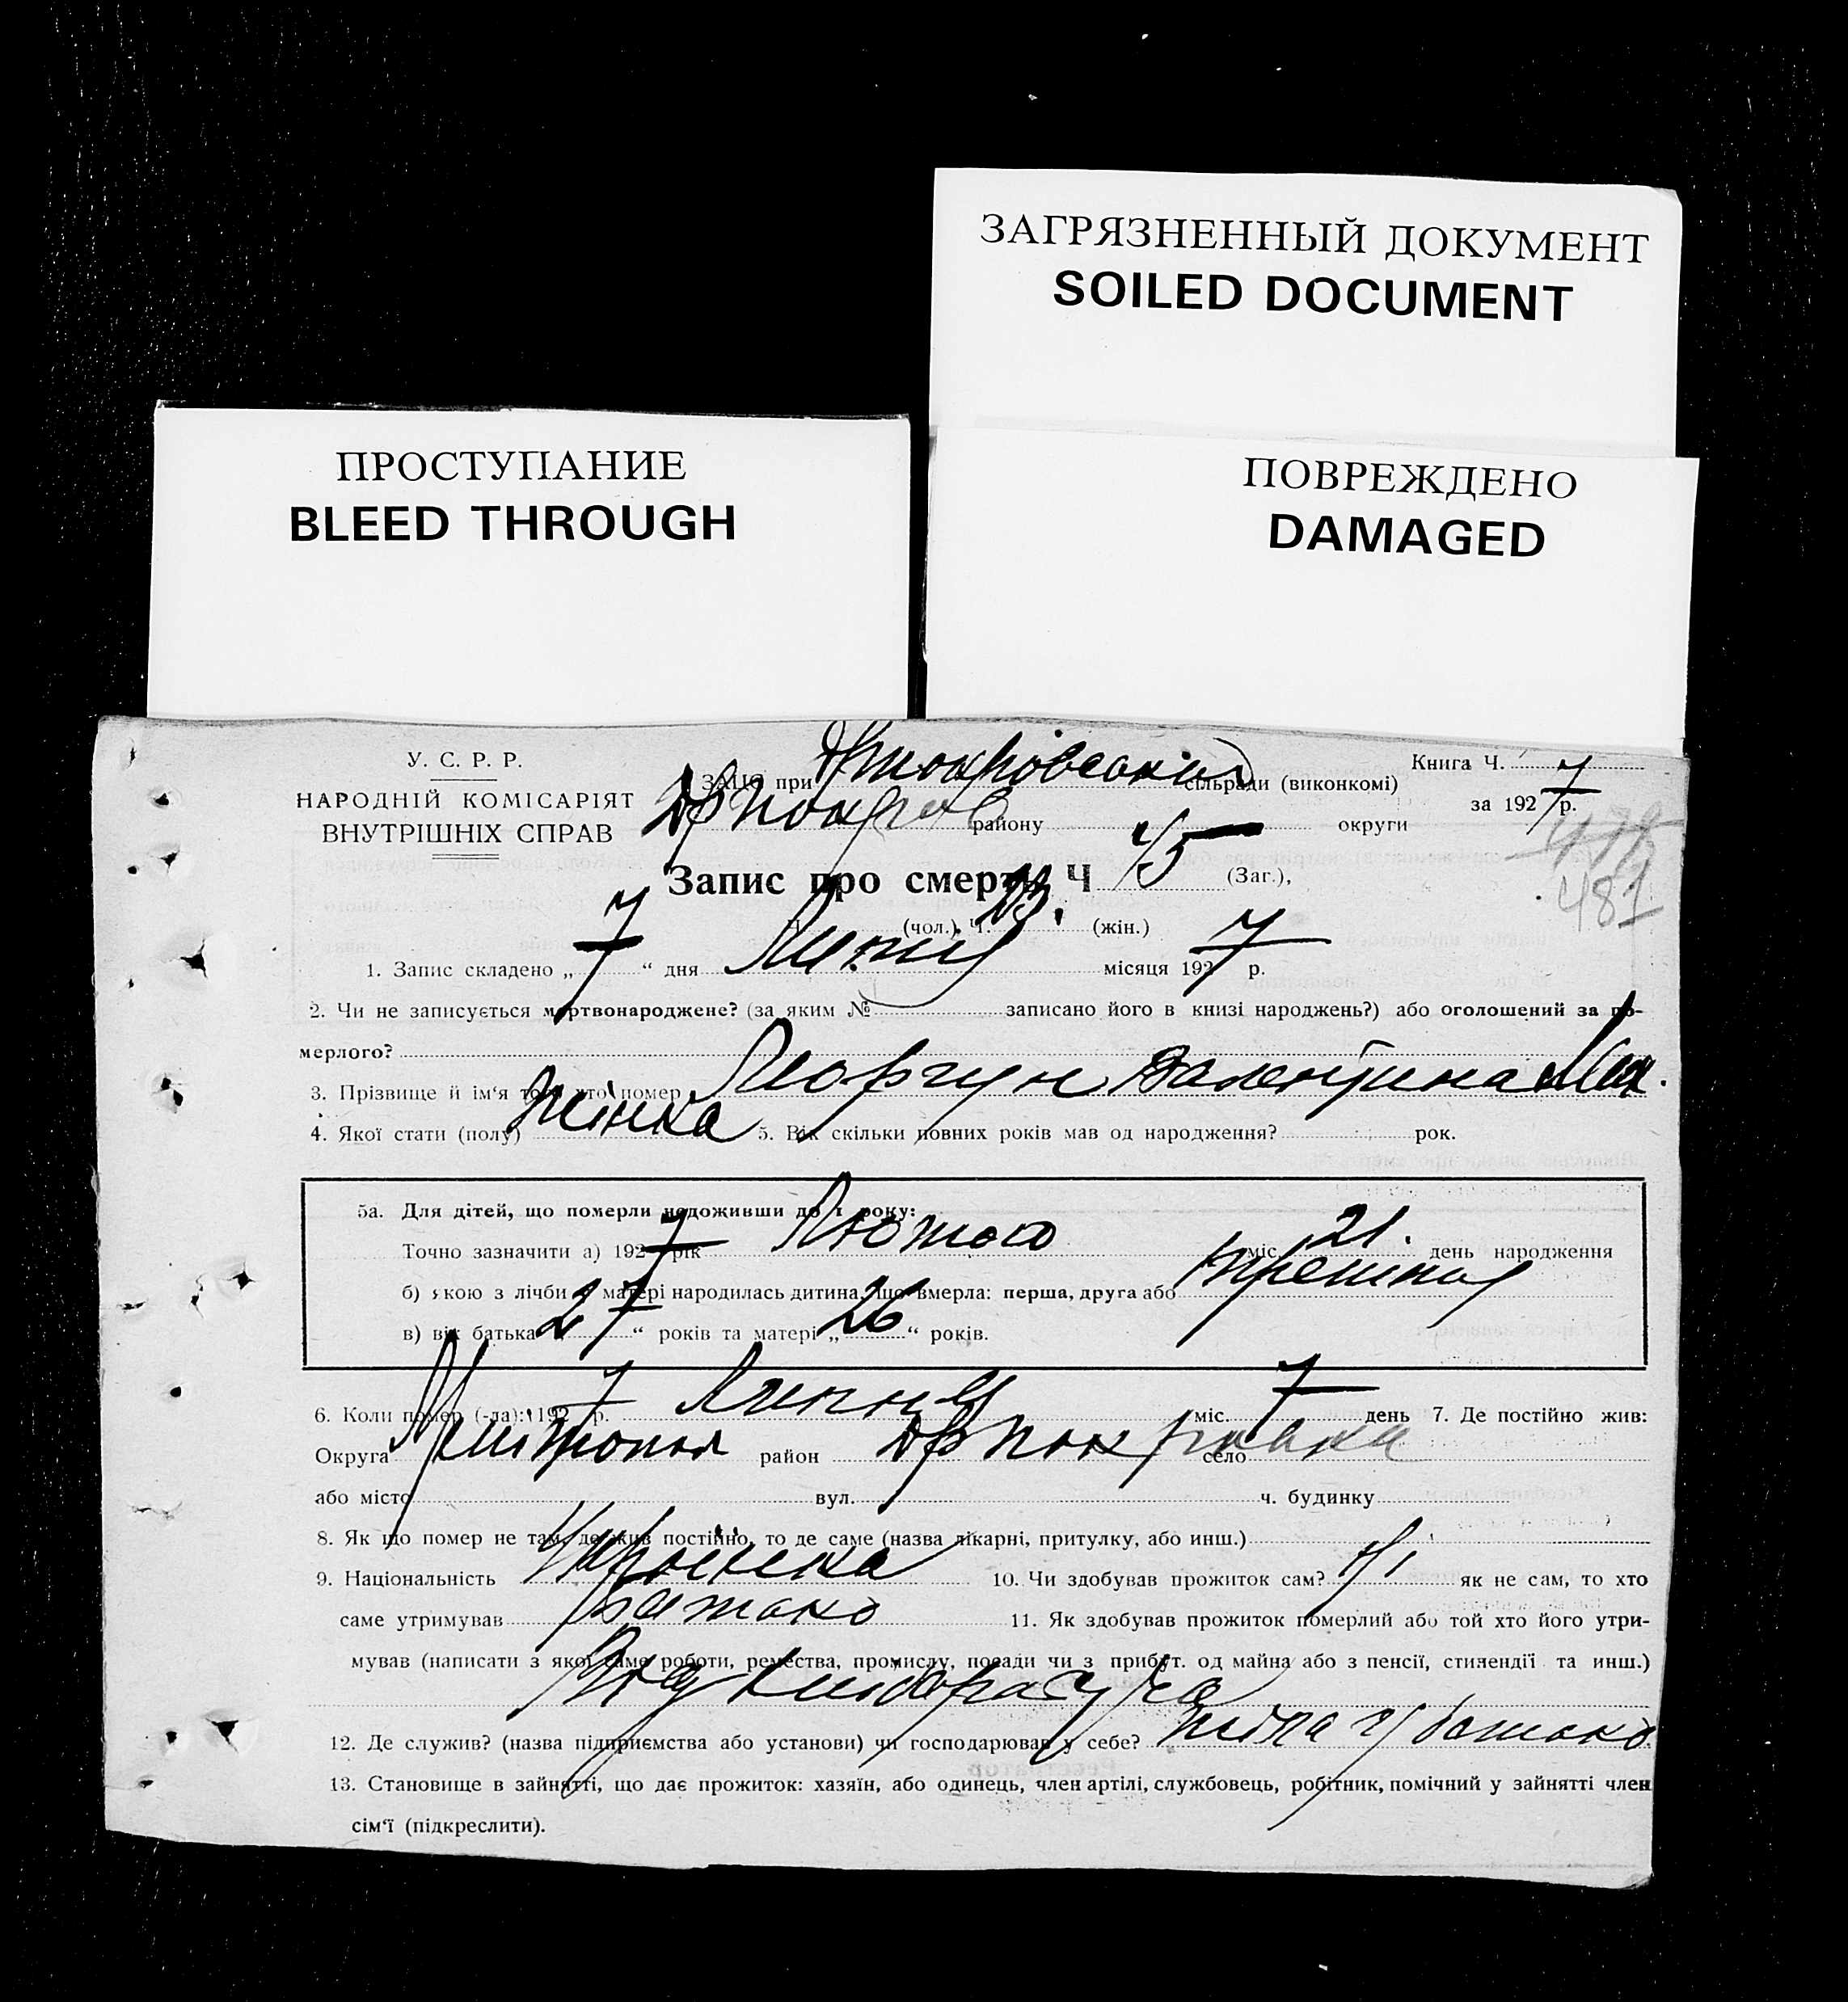 ЗАГРЯЗНЕННЫЙ ДОКУМЕНТ
SOILED DOCUMENT
ПРОСТУПАНИЕ
BLEED THROUGH
ПОВРЕЖДЕНО
DAMAGED
У. С. Р. Р.
НАРОДНІЙ КОМІСАРІЯТ
ВНУТРІШНІХ СПРАВ
ЗАЦС при сільради (виконкомі)
Книга Ч.
за 1927 р.
району округи
481
Запис про смерть Ч 45 (Заг.),
(чол.), Ч. 23. (жін.)
1. Запис складено „ 7 “ дня Липня місяця 1927 р.
2. Чи не записується мертвонароджене? (за яким № записано його в книзі народжень?) або оголошений за по-
мерлого?
3. Прізвище й ім'я того, хто помер Моргун Валентина Мих.
4. Якої стати (полу) жінка 5. Вік скільки повних років мав од народження? рок.
5а. Для дітей, що померли недоживши до 1 року:
Точно зазначити а) 1927 рік Лютого міс. 21. день народження
б) якою з лічби у матері народилась дитина, що вмерла: перша, друга або
в) вік батька 27 “ років та матері „ 26 “ років.
6. Коли помер (-ла): 1927 р. Липня міс. 7 день 7. Де постійно жив:
Округа район село
або місто вул. ч. будинку
8. Як що помер не там, де жив постійно, то де саме (назва лікарні, притулку, або инш.)
9. Національність Українка 10. Чи здобував прожиток сам? Ні як не сам, то хто
саме утримував батько 11. Як здобував прожиток померлий або той хто його утри-
мував (написати з якої саме роботи, ремества, промислу, посади чи з прибут. од майна або з пенсії, стипендії та инш.)
Від
12. Де служив? (назва підприємства або установи) чи господарював у себе? батько
13. Становище в зайнятті, що дає прожиток: хазяїн, або одинець, член артілі, службовець, робітник, помічний у зайнятті член
сім'ї (підкреслити).